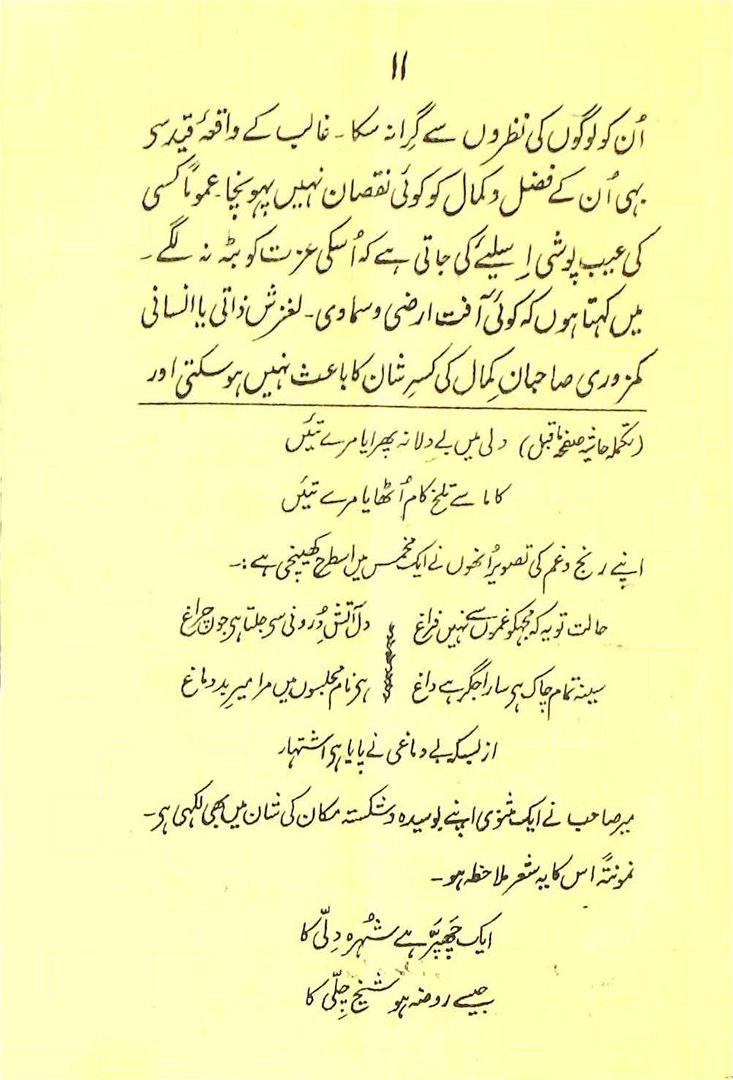 ۱۱
اُن کو لوگوں کی نظروں سے گرا نہ سکا ۔ غالب کے واقعۂ قید سی
بہی اُن کے فضل و کمال کو کوئی نقصان نہیں پہونچا ۔ عموماً کسی
کی عیب پوشی اِسلیئے کی جاتی ہے کہ اُسکی عزت کو بٹہ نہ لگے ۔
میں کہتا ہوں کہ کوئی آفت ارضی و سماوی ۔ لغزش ذاتی یا انسانی
کمزوری صاحبانِ کمال کی کسرِ شان کا باعث نہیں ہو سکتی اور
(تکملہ حاشیہ صفحہ ماقبل) دلی میں بے دلانہ پھرایا مرے تیئں
کاما سے تلخ کام اُٹھایا مرے تیئں
اپنے رنج و غم کی تصویر اُنھوں نے ایک مخمس میں اسطرح کھینچی ہے :۔
حالت تو یہ کہ مجہکو غموں سے نہیں فراغ دل آتش دُرونی سی جلتا ہی جون چراغ
سینہ تمام چاک ہی سارا جگر ہے داغ ہی نام مجلسوں میں مرا میرِ بد دماغ
از بسکہ بے دماغی نے پایا ہی اشتہار
میر صاحب نے ایک مثنوی اپنے بوسیدہ و شکستہ مکان کی شان میں بھی لکہی ہی ۔
نمونتہً اس کا یہ شعر ملاحظہ ہو ۔
ایک چَھپّر ہے شُہرہ دِلّی کا
جیسے روضہ ہو شیخ چِلّی کا